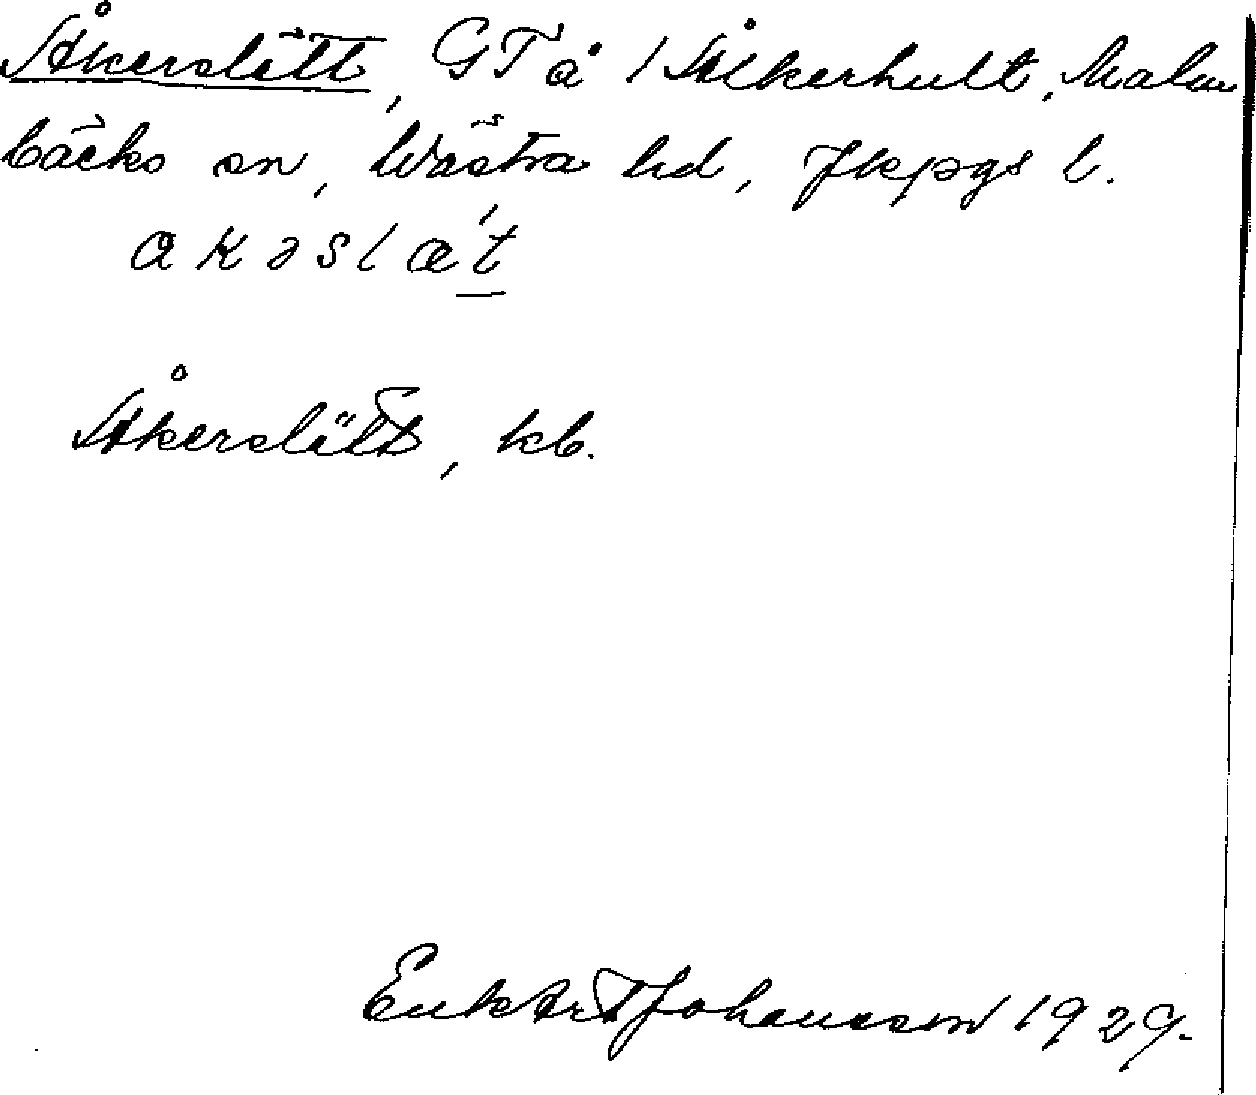 Åkerslätt, GTå 1 Åkerhult, Malm
bäcks sn, Västra hd, Jkpgs l.
akəslæ´t
Åkerslätt, kb.
Johansson 1929.